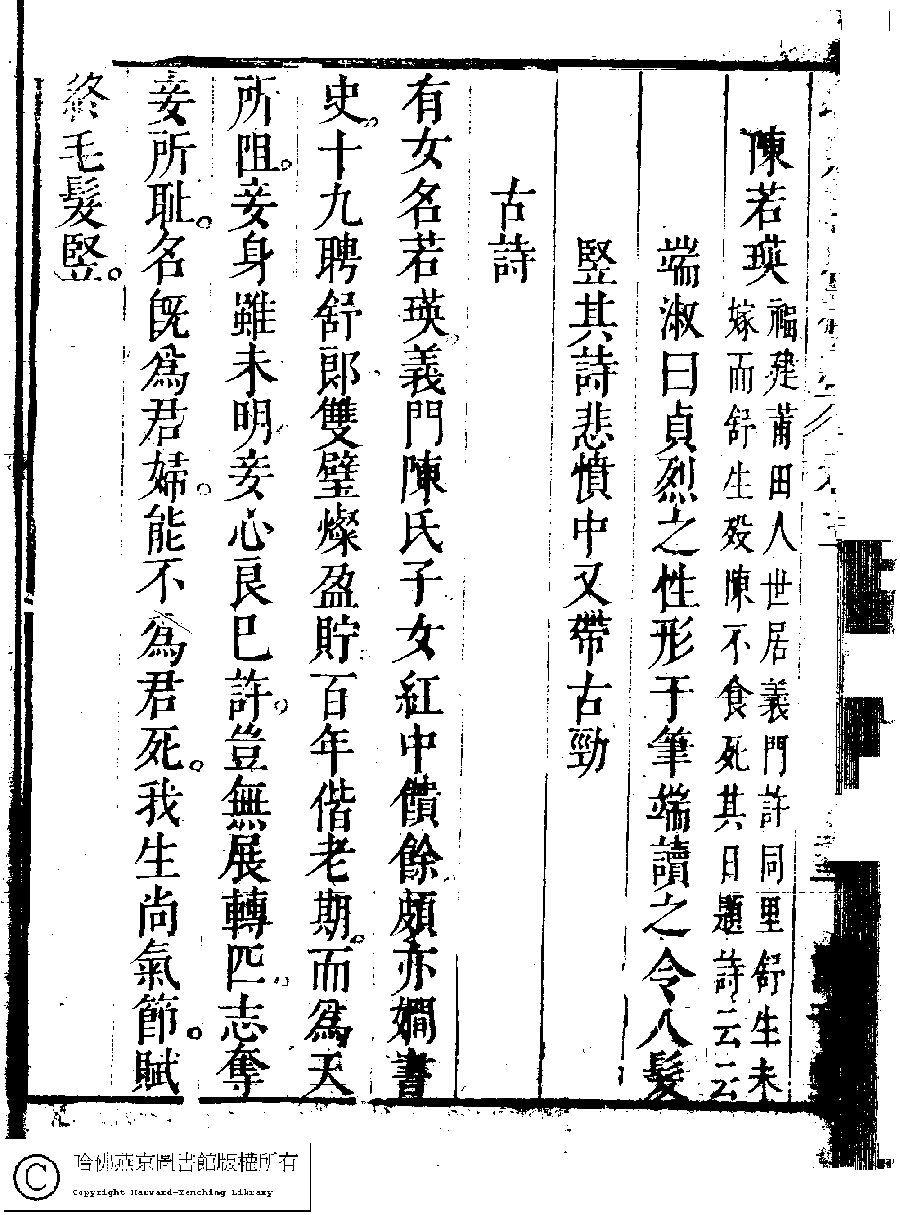 陳若瑛
福建莆田人世居義門許同里舒生未
嫁而舒生歿陳不食死其日題詩云云
端淑曰貞烈之性形于筆端讀之令人髮
竪其詩悲憤中又帶古勁
古詩
有女名若瑛義門陳氏子女紅中饋餘頗亦嫺書
史。十九聘舒郎雙璧燦盈貯百年偕老期。而爲天
所阻。妾身雖未明妾心良已許。豈無展轉匹。志奪
妾所耻。名旣爲君婦。能不為君死。我生尚氣節。賦
終毛髮竪。
哈佛燕京圖書館版權所有
Copyright Harvard-Yenching Library